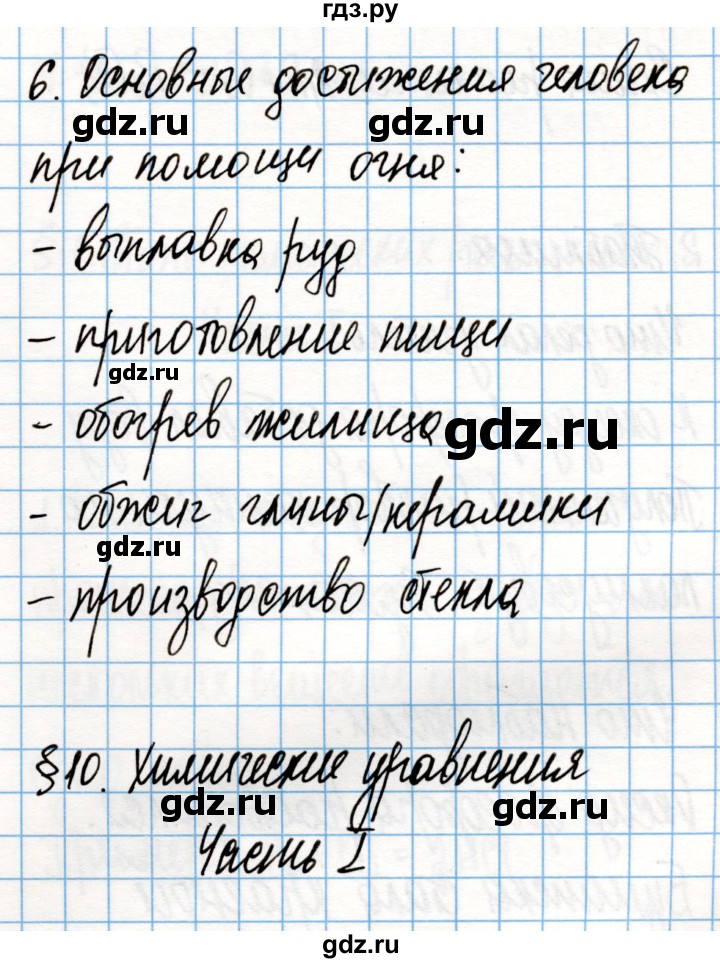 гдз.ру
6. Основные достижения человека
gdz.ru gdz.ru
при помощи огня:
- выплавка руд
- приготовление пищи
gdz.ru
- обогрев жилища
gdz.ru
- обжиг глины/керамики
gdz.ru
- производство стекла
§10. Химические уравнения
gdz.ru gdz.ru
Часть I
gdz.ru